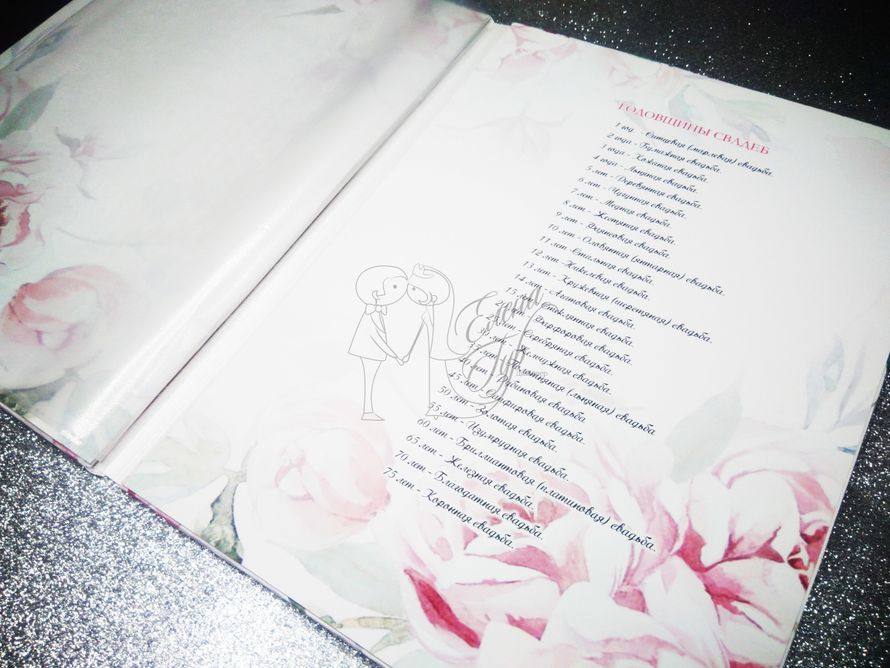 ГОДОВЩИНЫ СВАДЕБ
1 год - Ситцевая (марлевая) свадьба.
2 года - Бумажная свадьба.
3 года - Кожаная свадьба.
4 года - Льняная свадьба.
5 лет - Деревянная свадьба.
6 лет - Чугунная свадьба.
7 лет - Медная свадьба.
8 лет - Жестяная свадьба.
9 лет - Фаянсовая свадьба.
10 лет - Оловянная (янтарная) свадьба.
11 лет - Стальная свадьба.
12 лет - Никелевая свадьба.
13 лет - Кружевная (шерстяная) свадьба.
14 лет - Агатовая свадьба.
15 Стеклянная свадьба.
Фарфоровая свадьба.
Серебряная свадьба.
Жемчужная свадьба.
Полотняная (льняная) свадьба.
Рубиновая свадьба.
45 лет - Сапфировая свадьба.
50 лет - Золотая свадьба.
55 лет - Изумрудная свадьба.
60 лет - Бриллиантовая (платиновая) свадьба.
65 лет - Железная свадьба.
70 лет - Благодатная свадьба.
75 лет - Коронная свадьба.
Елена
Гур